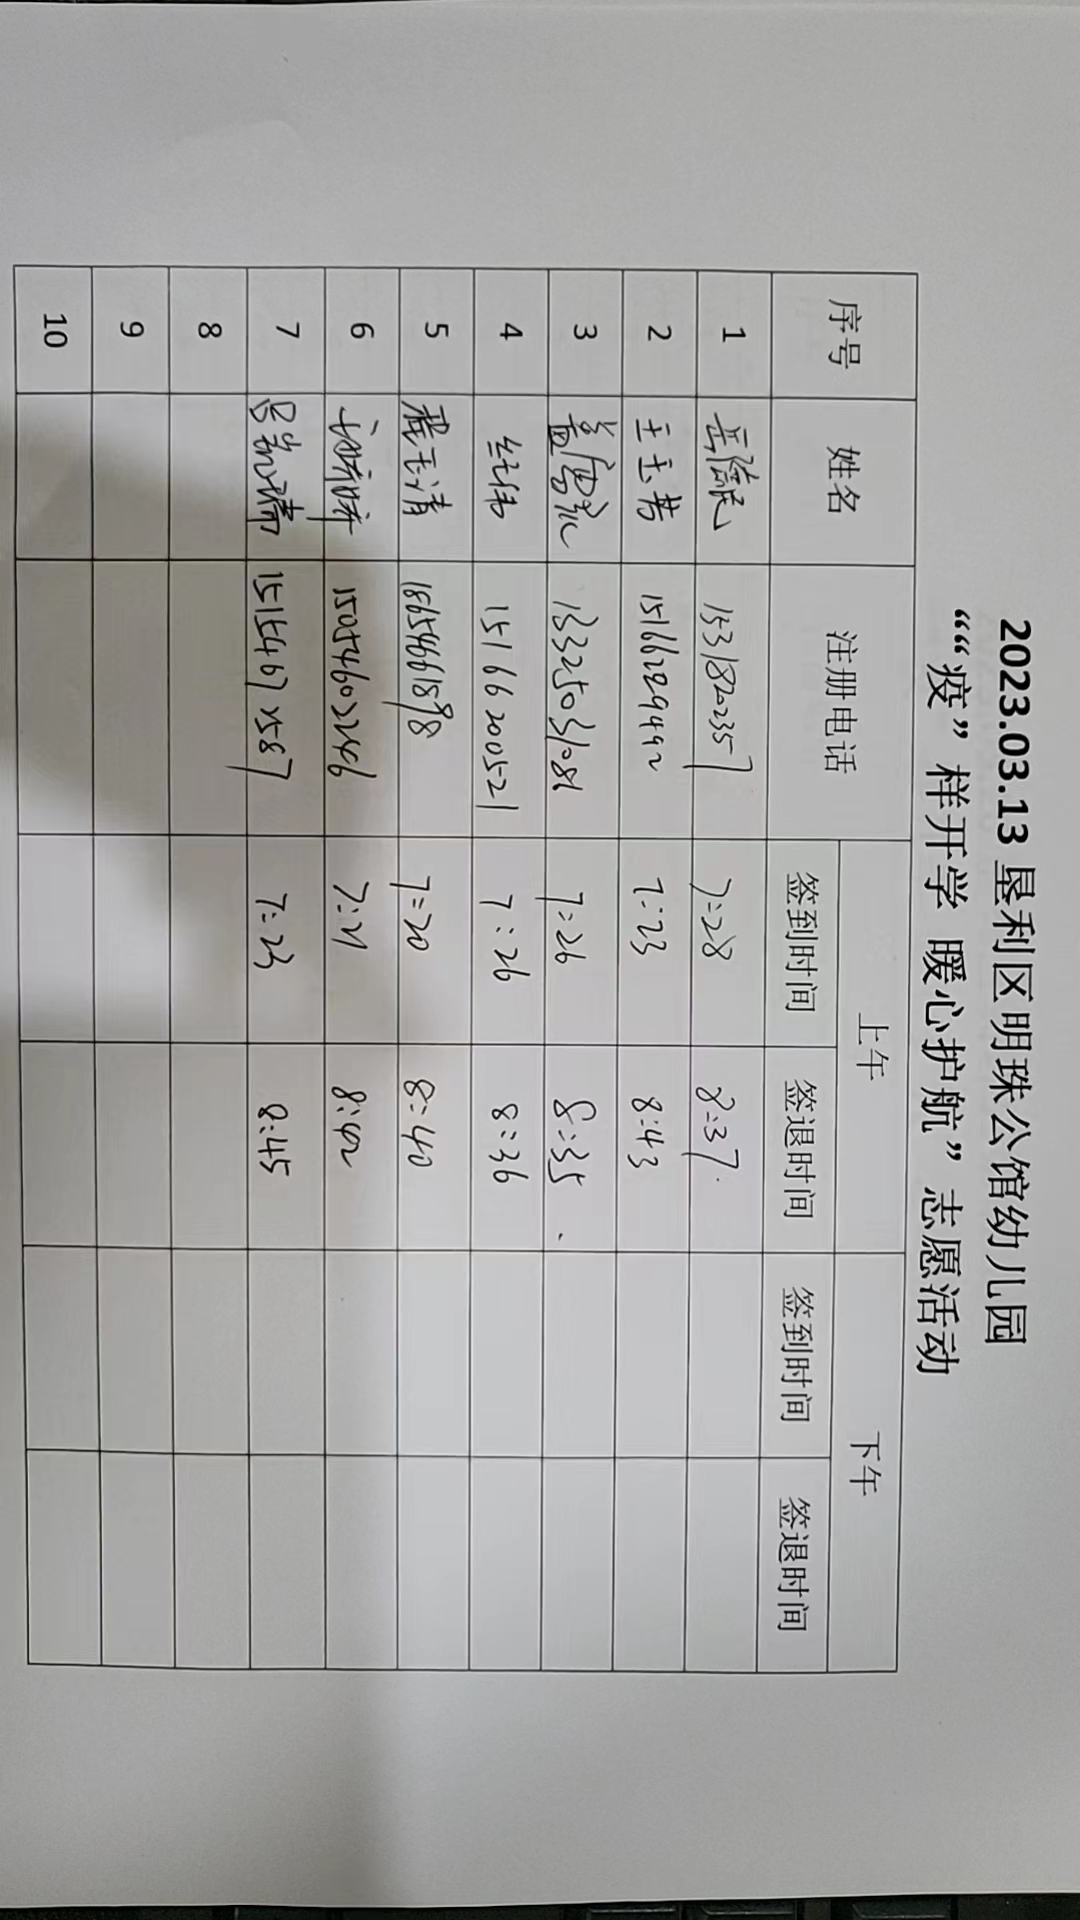 2023.03.13 垦利区明珠公馆幼儿园
““疫”样开学 暖心护航”志愿活动
序号 姓名 注册电话 上午 下午
签到时间 签退时间 签到时间 签退时间
1 15318202357 7:28 8:37
2 王玉芳 15166289492 7:23 8:43
3 13325031081 7:26 8:35
4 纪伟 15166200521 7:26 8:36
5 燕玉清 18654661898 7:20 8:40
6 15054602246 7:21 8:42
7 15154672587 7:23 8:45
8
9
10